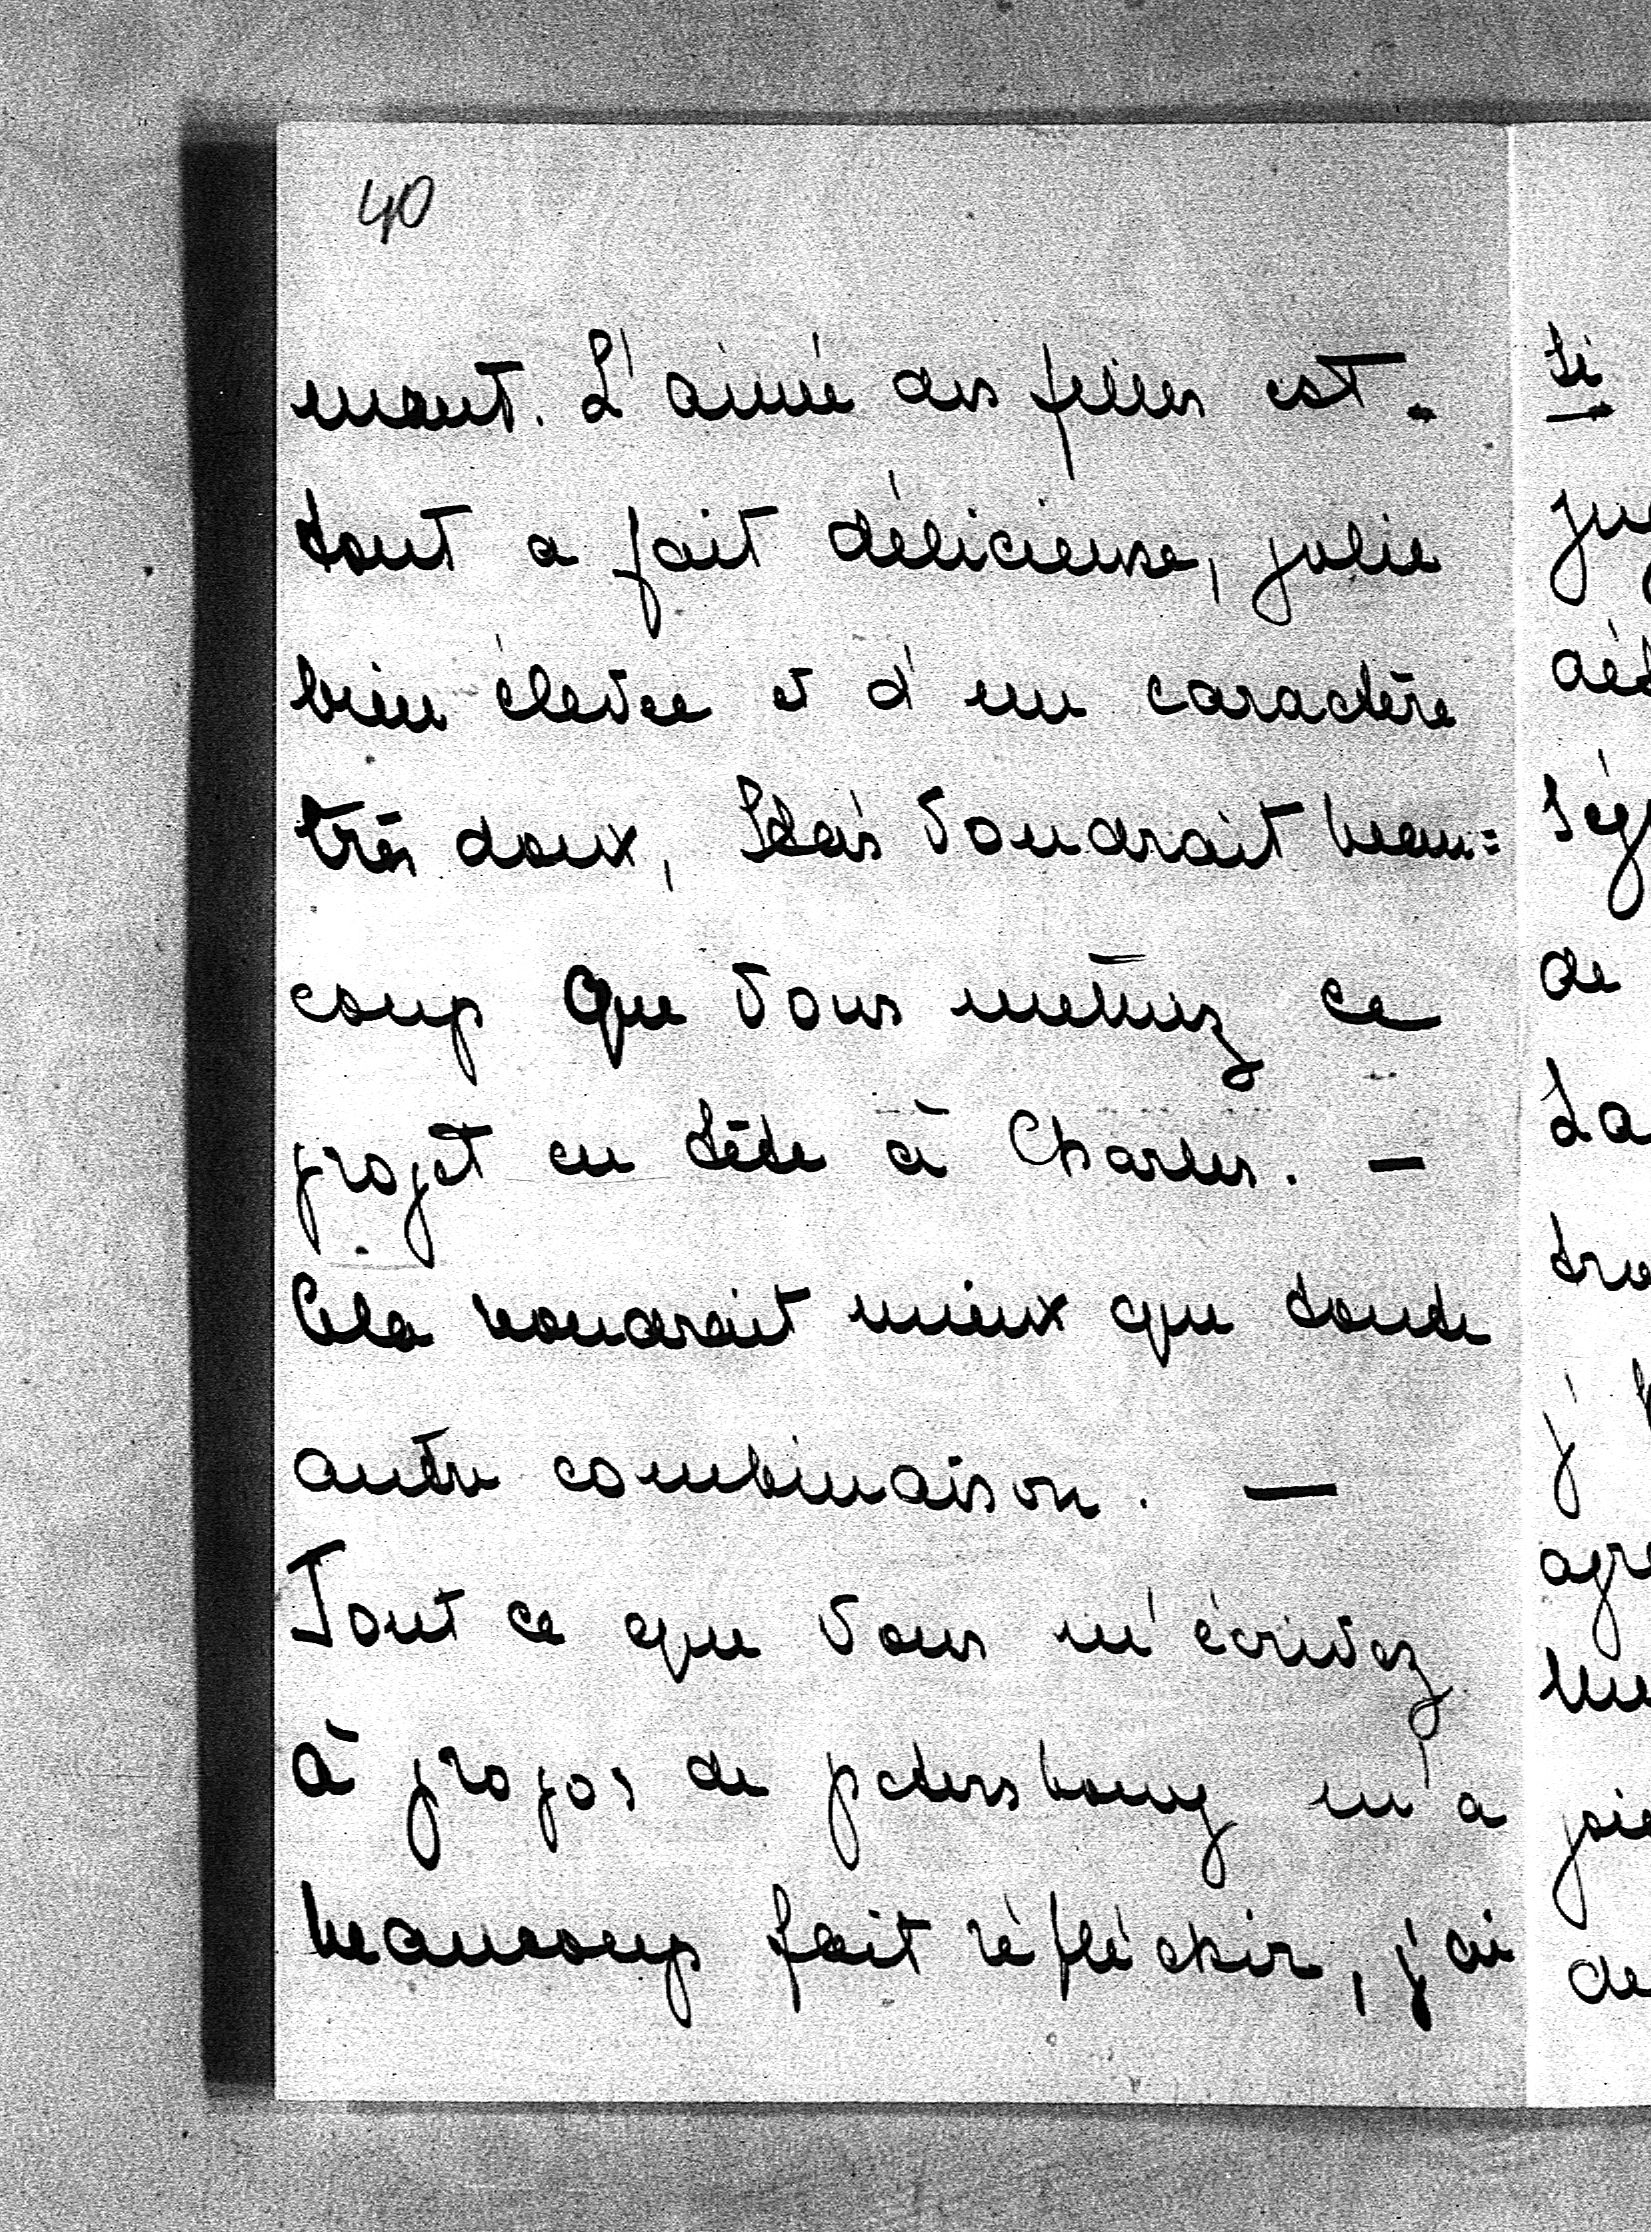 40
mont. L'ainée des filles est
tout a fait délicieuse, jolie
bien élevée et d'un caractère
très doux, voudrait beau=
coup que vous mettiez ce
projet en tête à Charles. —
Cela voudrait mieux que toute
autre combinaison. —
Tout ce que vous m'écrivez
à propos de petersbourg m'a
beaucoup fait réfléchir, j'ai
si
de